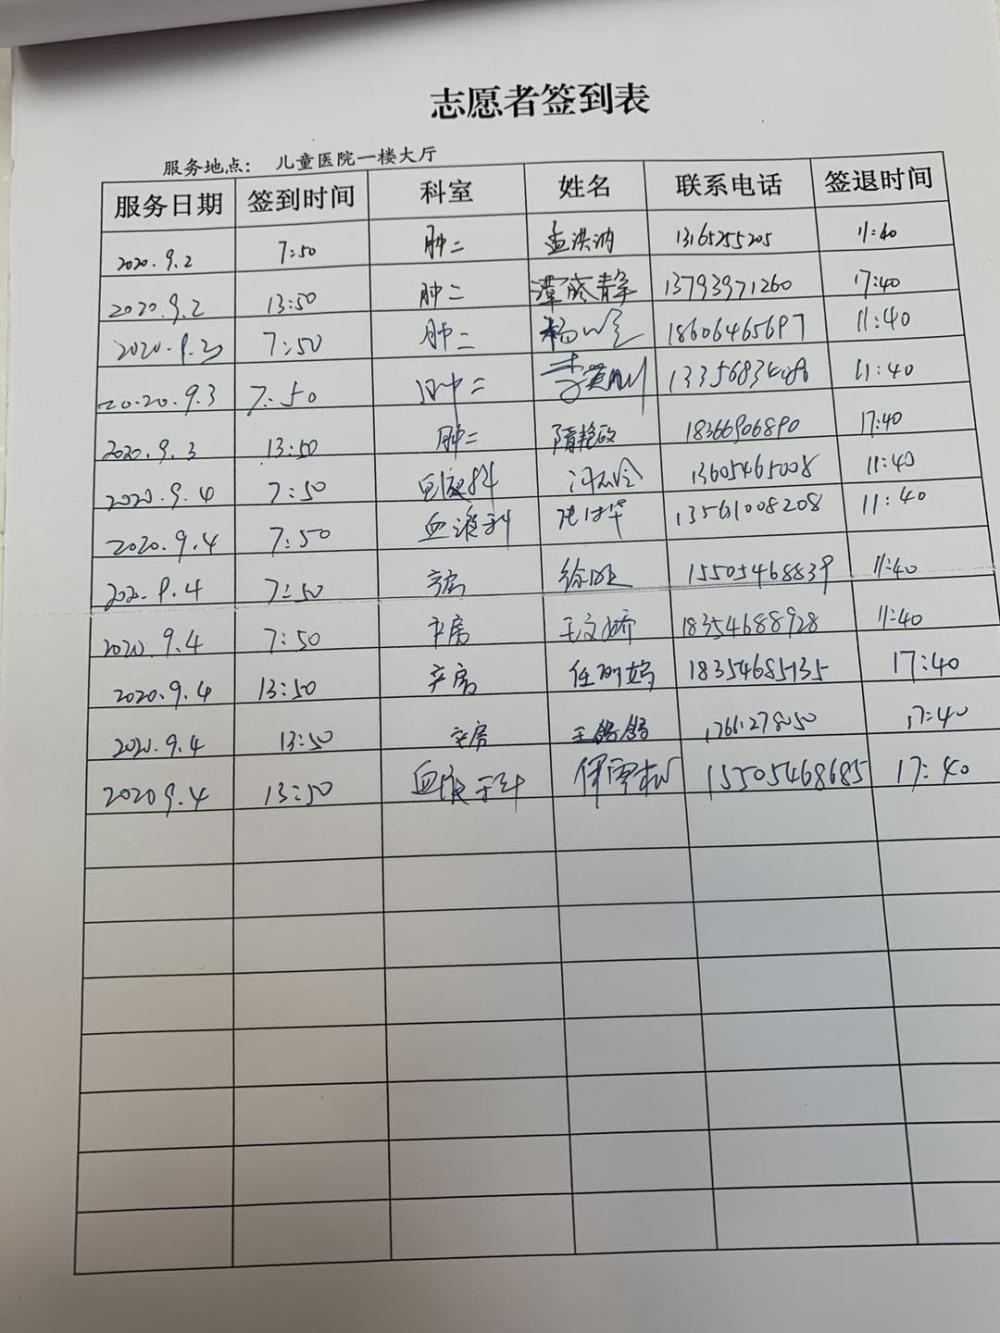 志愿者签到表
服务地点： 儿童医院一楼大厅
服务日期 签到时间 科室 姓名 联系电话 签退时间
2020.9.2 7:50 肿二 孟洪 13165255205 11:40
2020.9.2 13:50 肿二 静 13793971260 17:40
2020.9.3 7:50 肿二 杨 18606465697 11:40
2020.9.3 7:50 肿二 李 11:40
2020.9.3 13:50 肿二 隋艳 18366906890 17:40
2020.9.4 7:50 血液科 13605465008 11:40
2020.9.4 7:50 血液科 13561008208 11:40
2020.9.4 7:50 产房 徐 15505468839 11:40
2020.9.4 7:50 产房 王文娇 18354688928 11:40
2020.9.4 13:50 产房 任 18354685735 17:40
2020.9.4 13:50 产房 王 17:40
2020 9.4 13:50 血液科 雪松 15505468685 17:40